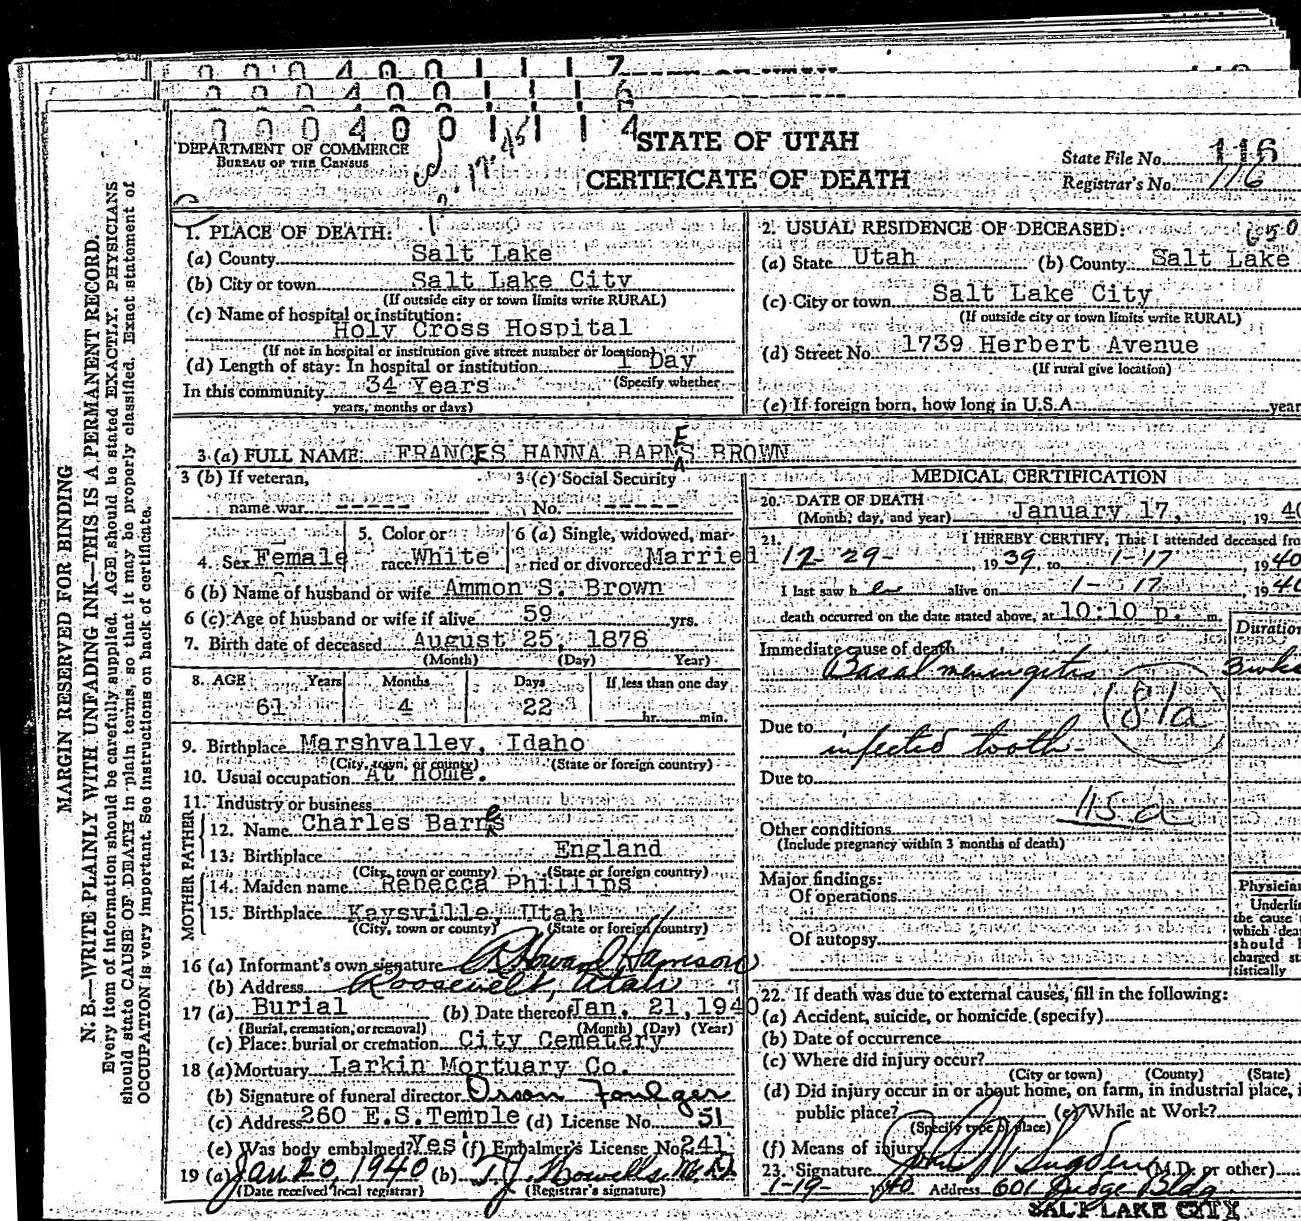 0 0 0 4 0 0 1 1 1 7
0 0 0 4 0 0 1 1 1 6
0 0 0 4 0 0 1 1 1 4
DEPARTMENT OF COMMERCE
BUREAU OF THE CENSUS
STATE OF UTAH
CERTIFICATE OF DEATH
State File No. 116
Registrar's No. 116
MARGIN RESERVED FOR BINDING
N. B.—WRITE PLAINLY WITH UNFADING INK—THIS IS A PERMANENT RECORD.
Every item of information should be carefully supplied. AGE should be stated EXACTLY. PHYSICIANS
should state CAUSE OF DEATH in plain terms, so that it may be properly classified. Exact statement of
OCCUPATION is very important. See instructions on back of certificate.
1. PLACE OF DEATH:
(a) County Salt Lake
(b) City or town Salt Lake City
(If outside city or town limits write RURAL)
(c) Name of hospital or institution:
Holy Cross Hospital
(If not in hospital or institution give street number or location)
(d) Length of stay: In hospital or institution 1 Day
(Specify whether
In this community 34 Years
years, months or days)
2. USUAL RESIDENCE OF DECEASED: 650
(a) State Utah (b) County Salt Lake
(c) City or town Salt Lake City
(If outside city or town limits write RURAL)
(d) Street No. 1739 Herbert Avenue
(If rural give location)
(e) If foreign born, how long in U.S.A. year
3 (a) FULL NAME FRANCES HANNA BARNES BROWN
3 (b) If veteran, name war -----
3 (c) Social Security No. -----
4. Sex Female
5. Color or race White
6 (a) Single, widowed, married or divorced Married
6 (b) Name of husband or wife Ammon S. Brown
6 (c) Age of husband or wife if alive 59 yrs.
7. Birth date of deceased August 25, 1878
(Month) (Day) Year)
8. AGE Years Months Days If less than one day
61 4 22 hr. min.
9. Birthplace Marshvalley, Idaho
(City, town, or county) (State or foreign country)
10. Usual occupation At home.
11. Industry or business
FATHER
12. Name Charles Barnes
13. Birthplace England
(City, town or county) (State or foreign country)
MOTHER
14. Maiden name Rebecca Phillips
15. Birthplace Kaysville, Utah
(City, town or county) (State or foreign country)
16 (a) Informant's own signature Howard Hamison
(b) Address Roosevelt, Utah
17 (a) Burial (b) Date thereof Jan. 21, 1940
(Burial, cremation, or removal) (Month) (Day) (Year)
(c) Place: burial or cremation City Cemetery
18 (a) Mortuary Larkin Mortuary Co.
(b) Signature of funeral director Orson Foulger
(c) Address 260 E.S.Temple (d) License No. 51
(e) Was body embalmed? Yes (f) Embalmer's License No. 241
19 (a) Jan 20, 1940 (b) T.J. Howells M.D.
(Date received local registrar) (Registrar's signature)
MEDICAL CERTIFICATION
20. DATE OF DEATH
(Month, day, and year) January 17, , 19 40
21. I HEREBY CERTIFY, That I attended deceased fro
12-29- , 19 39, to 1-17 , 19 40
I last saw h er alive on 1-17 , 19 40
death occurred on the date stated above, at 10:10 p. m.
Duration
Immediate cause of death
Basal meningitis 3 wks
81a
Due to
infected tooth
Due to
115 d
Other conditions
(Include pregnancy within 3 months of death)
Major findings:
Of operations
Of autopsy
Physician
Underli
the cause
which dea
should
charged st
tistically
22. If death was due to external causes, fill in the following:
(a) Accident, suicide, or homicide (specify)
(b) Date of occurrence
(c) Where did injury occur?
(City or town) (County) (State)
(d) Did injury occur in or about home, on farm, in industrial place, i
public place? (e) While at Work?
(Specify type of place)
(f) Means of injury
23. Signature John W Sugden (M.D. or other)
1-19- 1940 Address 601 Judge Bldg
SALT LAKE CITY